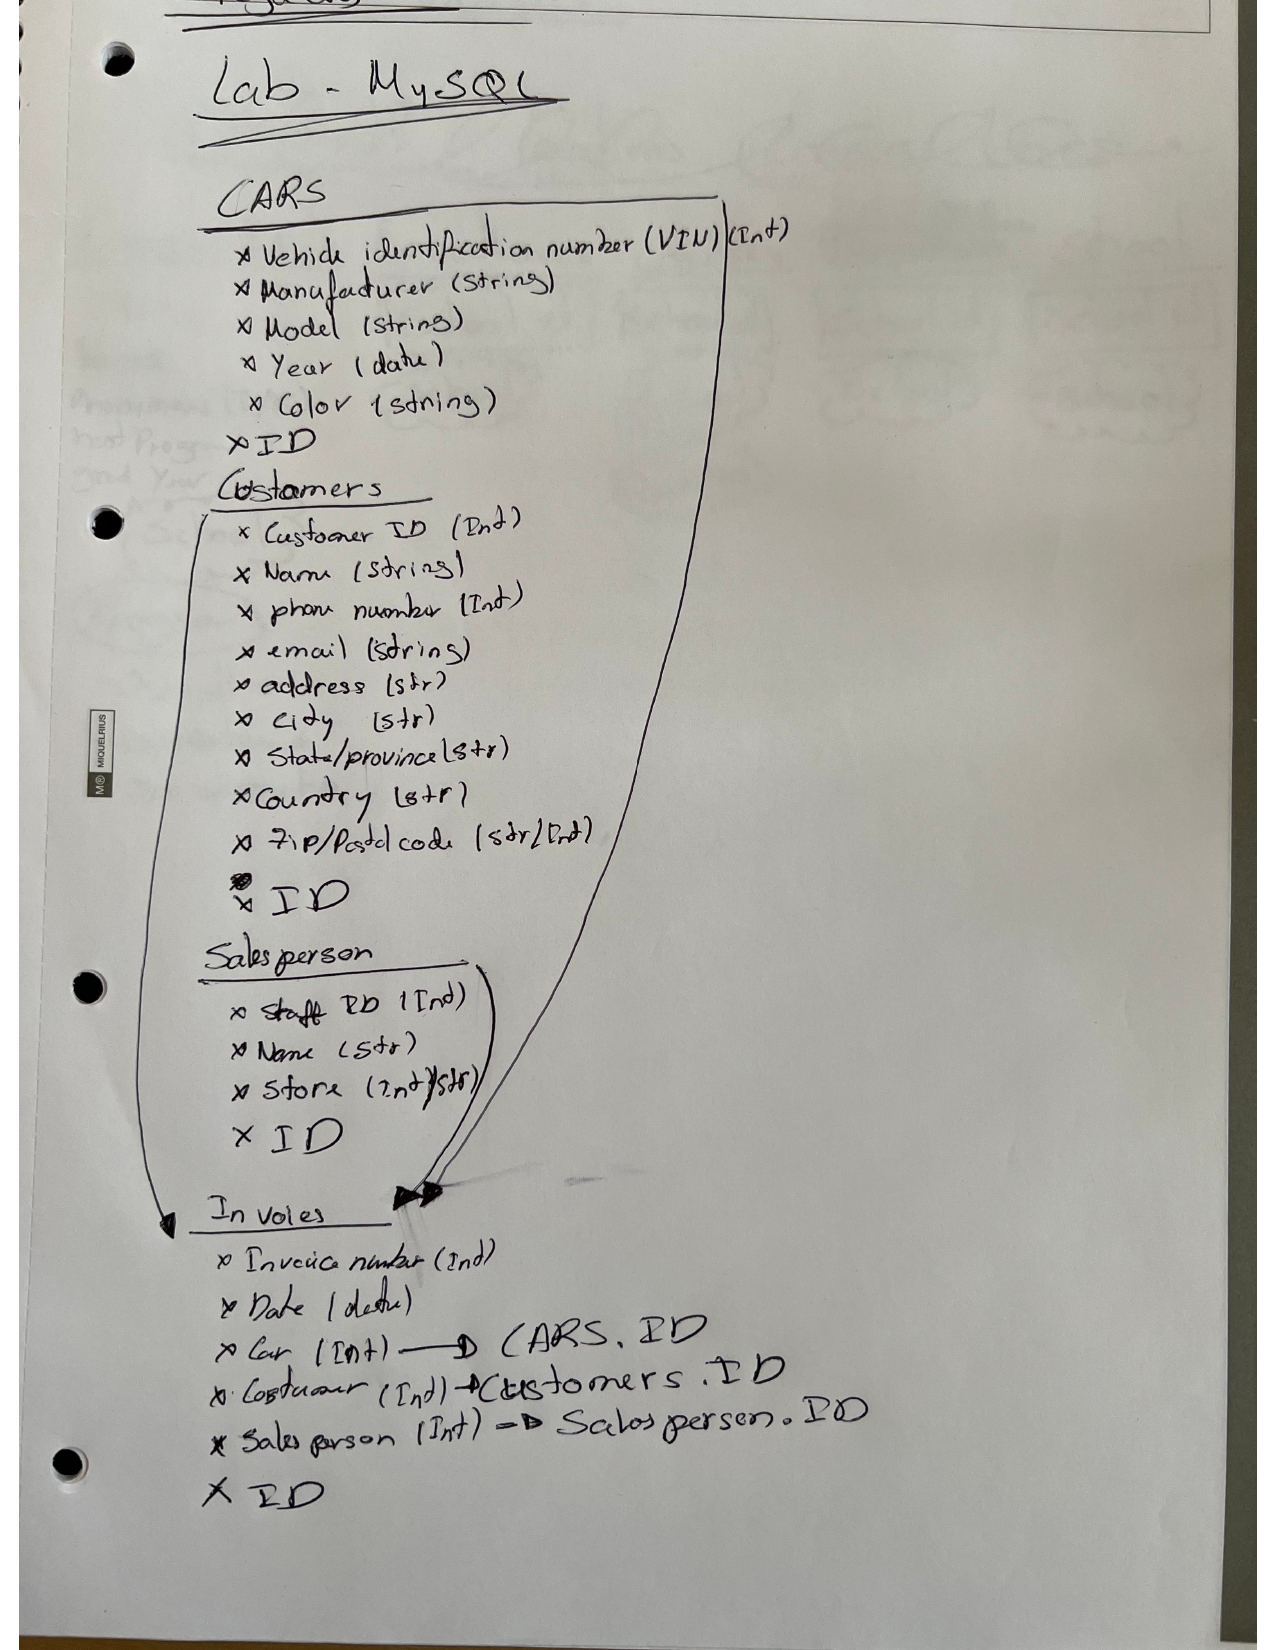 Lab - MySQL
CARS
x Vehicle identification number (VIN) (Int)
x Manufacturer (string)
x Model (string)
x Year (date)
x Color (string)
x ID
Customers
x Customer ID (Int)
x Name (string)
x phone number (Int)
x email (string)
x address (str)
x city (str)
x State/province (str)
x Country (str)
x Zip/Postal code (str/Int)
x ID
Salesperson
x Staff ID (Int)
x Name (str)
x Store (Int/str)
x ID
Invoies
x Invoice number (Int)
x Date (date)
x Car (Int) → CARS.ID
x Costumer (Int) → Customers.ID
x Sales person (Int) → Salesperson.ID
x ID
M® MIQUELRIUS